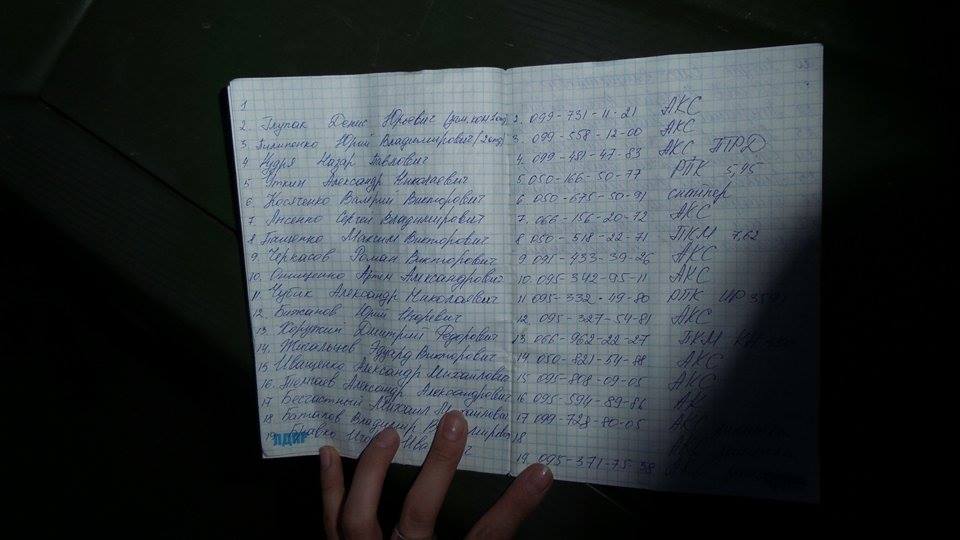 1
2. Глупак Денис Юрьевич (зам. ком. 2. 099-731-11-21 АКС
3. Пилипенко Юрий Владимирович 3. 099-558-12-00 АКС
4 Кудря Назар Павлович 4. 099-481-47-83 АКС ПТРД
5. Уткин Александр Николаевич 5. 050-166-50-77 РПК 5,45
6. Косяченко Валерий Викторович 6 050-675-50-91 снайпер
7 Лысенко Сергей Владимирович 7. 066-156-20-72 АКС
8 Пащенко Максим Викторович 8 050-518-22-71 ПКМ 7,62
9. Черкасов Роман Викторович 9 091-433-39-26 АКС
10. Онищенко Артём Александрович 10 095-342-95-11 АКС
11. Чубик Александр Николаевич 11 095-332-49-80 РПК
12. Бижанов Юрий Игоревич 12. 095-327-54-81 АКС
13. Хоружин Дмитрий Федорович 13. 066-962-22-27
14. Жигальцев Эдуард Викторович 14 050-821-54-88 АКС
15 Иващенко Александр Михайлович 15 095-808-09-05 АКС
16. Александр Александрович 16 095-594-89-86 АК
17 Бесчастный Михаил Михайлович 17 099-728-80-05
18 Баталов Владимир Владимирович 18
19 19. 095-371-75-38